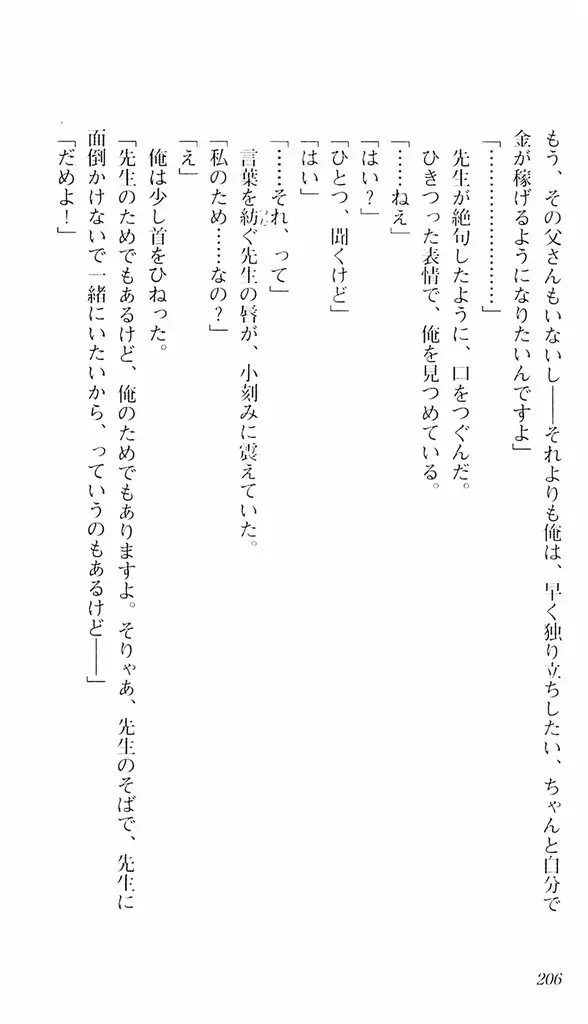 もう、その父さんもいないし――それよりも俺は、早く独り立ちしたい、ちゃんと自分で
金が稼げるようになりたいんですよ」
「……………………」
先生が絶句したように、口をつぐんだ。
ひきつった表情で、俺を見つめている。
「……ねえ」
「はい？」
「ひとつ、聞くけど」
「はい」
「……それ、って」
言葉を紡ぐ先生の唇が、小刻みに震えていた。
「私のため……なの？」
「え」
俺は少し首をひねった。
「先生のためでもあるけど、俺のためでもありますよ。そりゃあ、先生のそばで、先生に
面倒かけないで一緒にいたいから、っていうのもあるけど――」
「だめよ！」
206